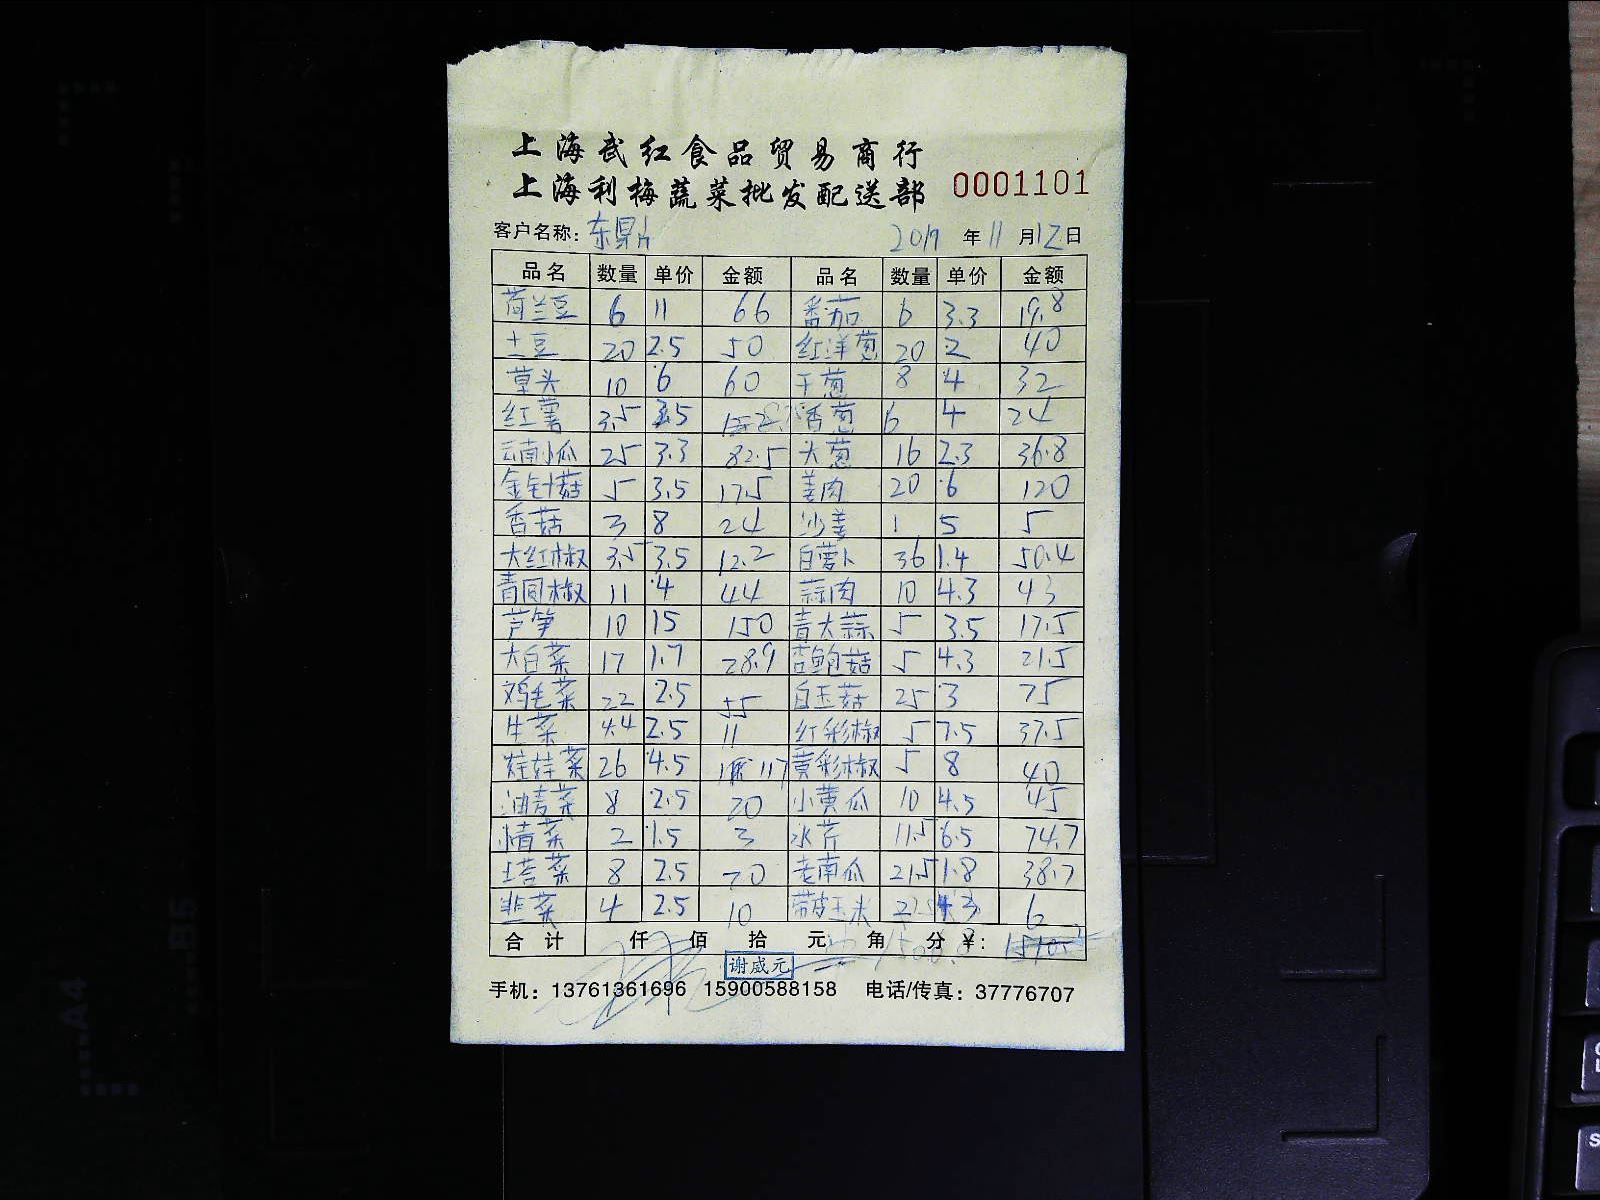 上海武红食品贸易商行
上海利梅蔬菜批发配送部 0001101
客户名称: 东鼎 2017 年 11 月 12 日
品名 数量 单价 金额 品名 数量 单价 金额
荷兰豆 6 11 66 番茄 6 3.3 19.8
土豆 20 2.5 50 红洋葱 20 2 40
草头 10 6 60 干葱 8 4 32
红薯 3.5 香葱 6 4 24
云南小瓜 25 3.3 82.5 大葱 16 2.3 36.8
金针菇 5 3.5 17.5 姜肉 20 6 120
香菇 3 8 24 沙姜 1 5 5
大红椒 3.5 3.5 12.2 白萝卜 36 1.4 50.4
青圆椒 11 4 44 蒜肉 10 4.3 43
芦笋 10 15 150 青大蒜 5 3.5 17.5
大白菜 17 1.7 28.9 杏鲍菇 5 4.3 21.5
鸡毛菜 22 2.5 55 白玉菇 25 3 75
生菜 4.4 2.5 11 红彩椒 5 7.5 37.5
娃娃菜 26 4.5 117 黄彩椒 5 8 40
油麦菜 8 2.5 20 小黄瓜 10 4.5 45
2 1.5 3 水芹 11.5 6.5 74.7
塔菜 8 2.5 20 老南瓜 21.5 1.8 38.7
韭菜 4 2.5 10 带皮玉米 2 3 6
合计 仟 佰 拾 元 角 分 ¥:
谢咸元
手机: 13761361696 15900588158 电话/传真: 37776707